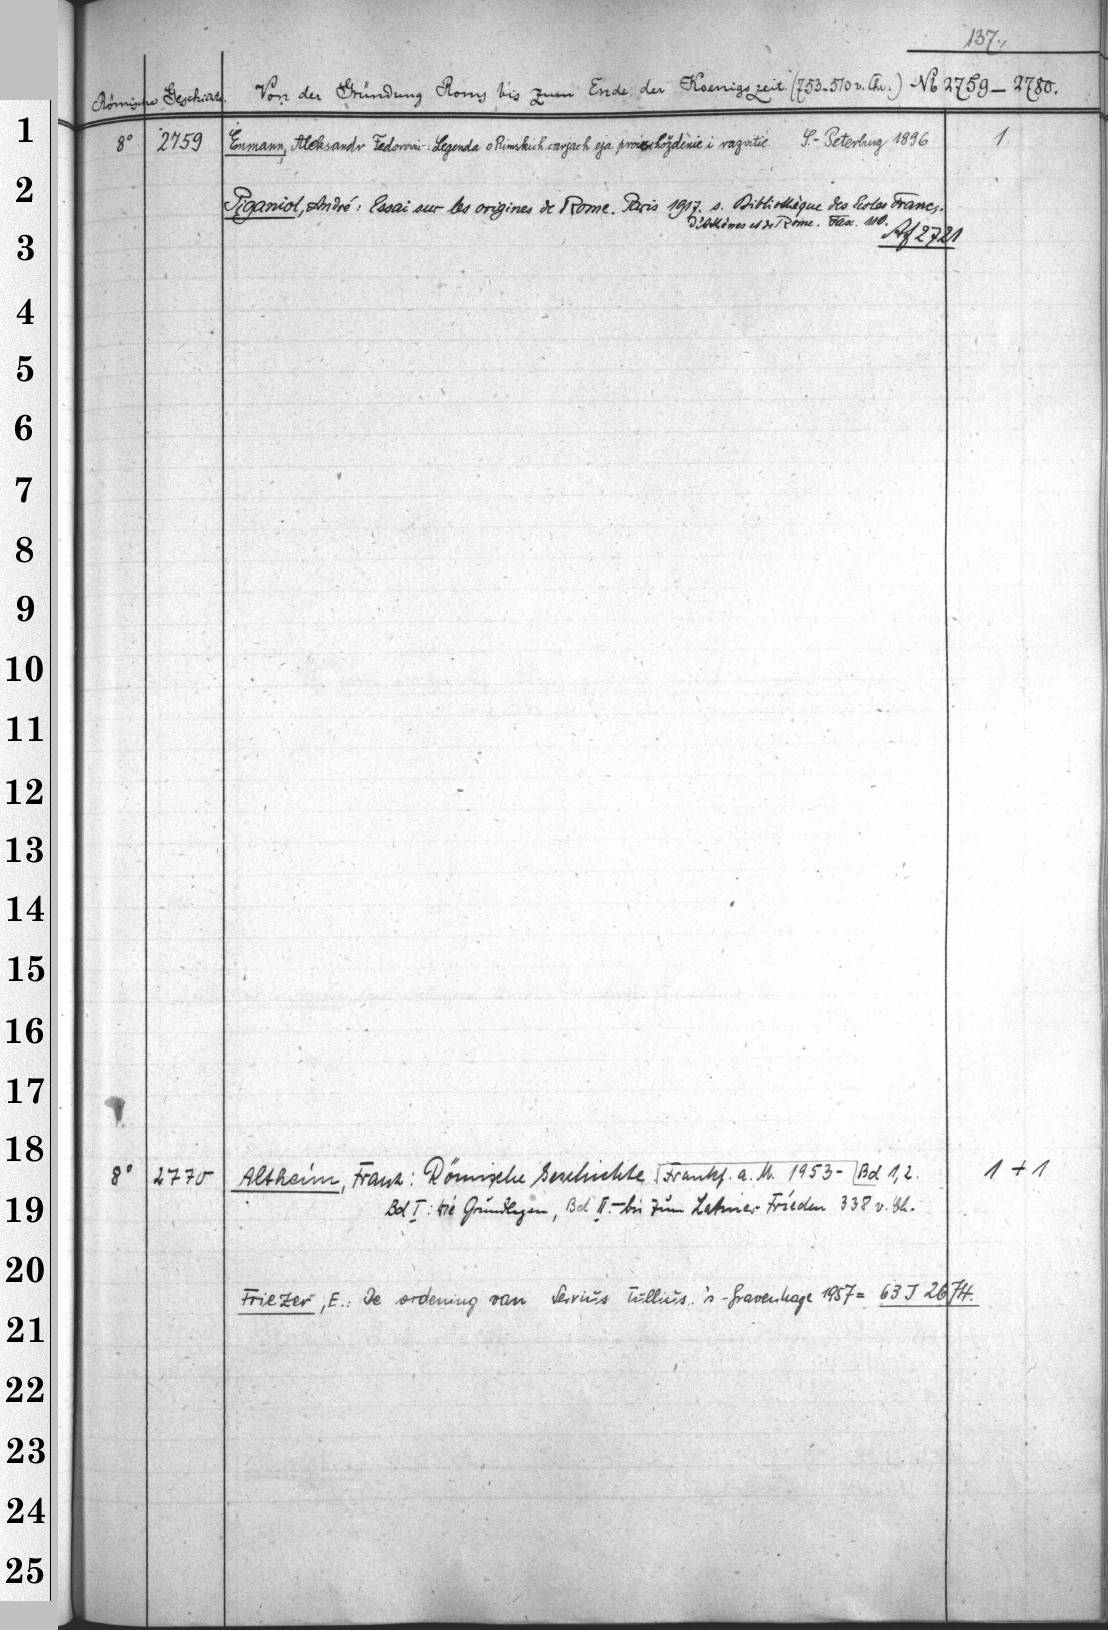 137
Römische Geschichte. Von der Gründung Roms bis zum Ende der Koenigszeit. (753-510 v. Chr.) № 2759-2780.
1
8° 2759 Enmann, Aleksandr Fedorovic: Legenda o Rimskich carjach eja proischoždenie i razvitie S.-Peterburg 1896 1
2
Piganiol, André: Essai sur les origines de Rome. Paris 1917. s. Bibliothèque des Ecoles Franç.
d'Athènes et de Rome. Fasc. 110.
Af 2721
3
4
5
6
7
8
9
10
11
12
13
14
15
16
17
18
8° 2770 Altheim, Franz: Römische Geschichte Frankf. a. M. 1953- Bd 1,2. 1 + 1
19
Bd I: Die Grundlagen, Bd II.- bis zum Latiner-Frieden 338 v. Ch.
20
Friezer, E.: De ordening van Servius Tullius. 's-Gravenhage 1957 = 63 J 2674.
21
22
23
24
25